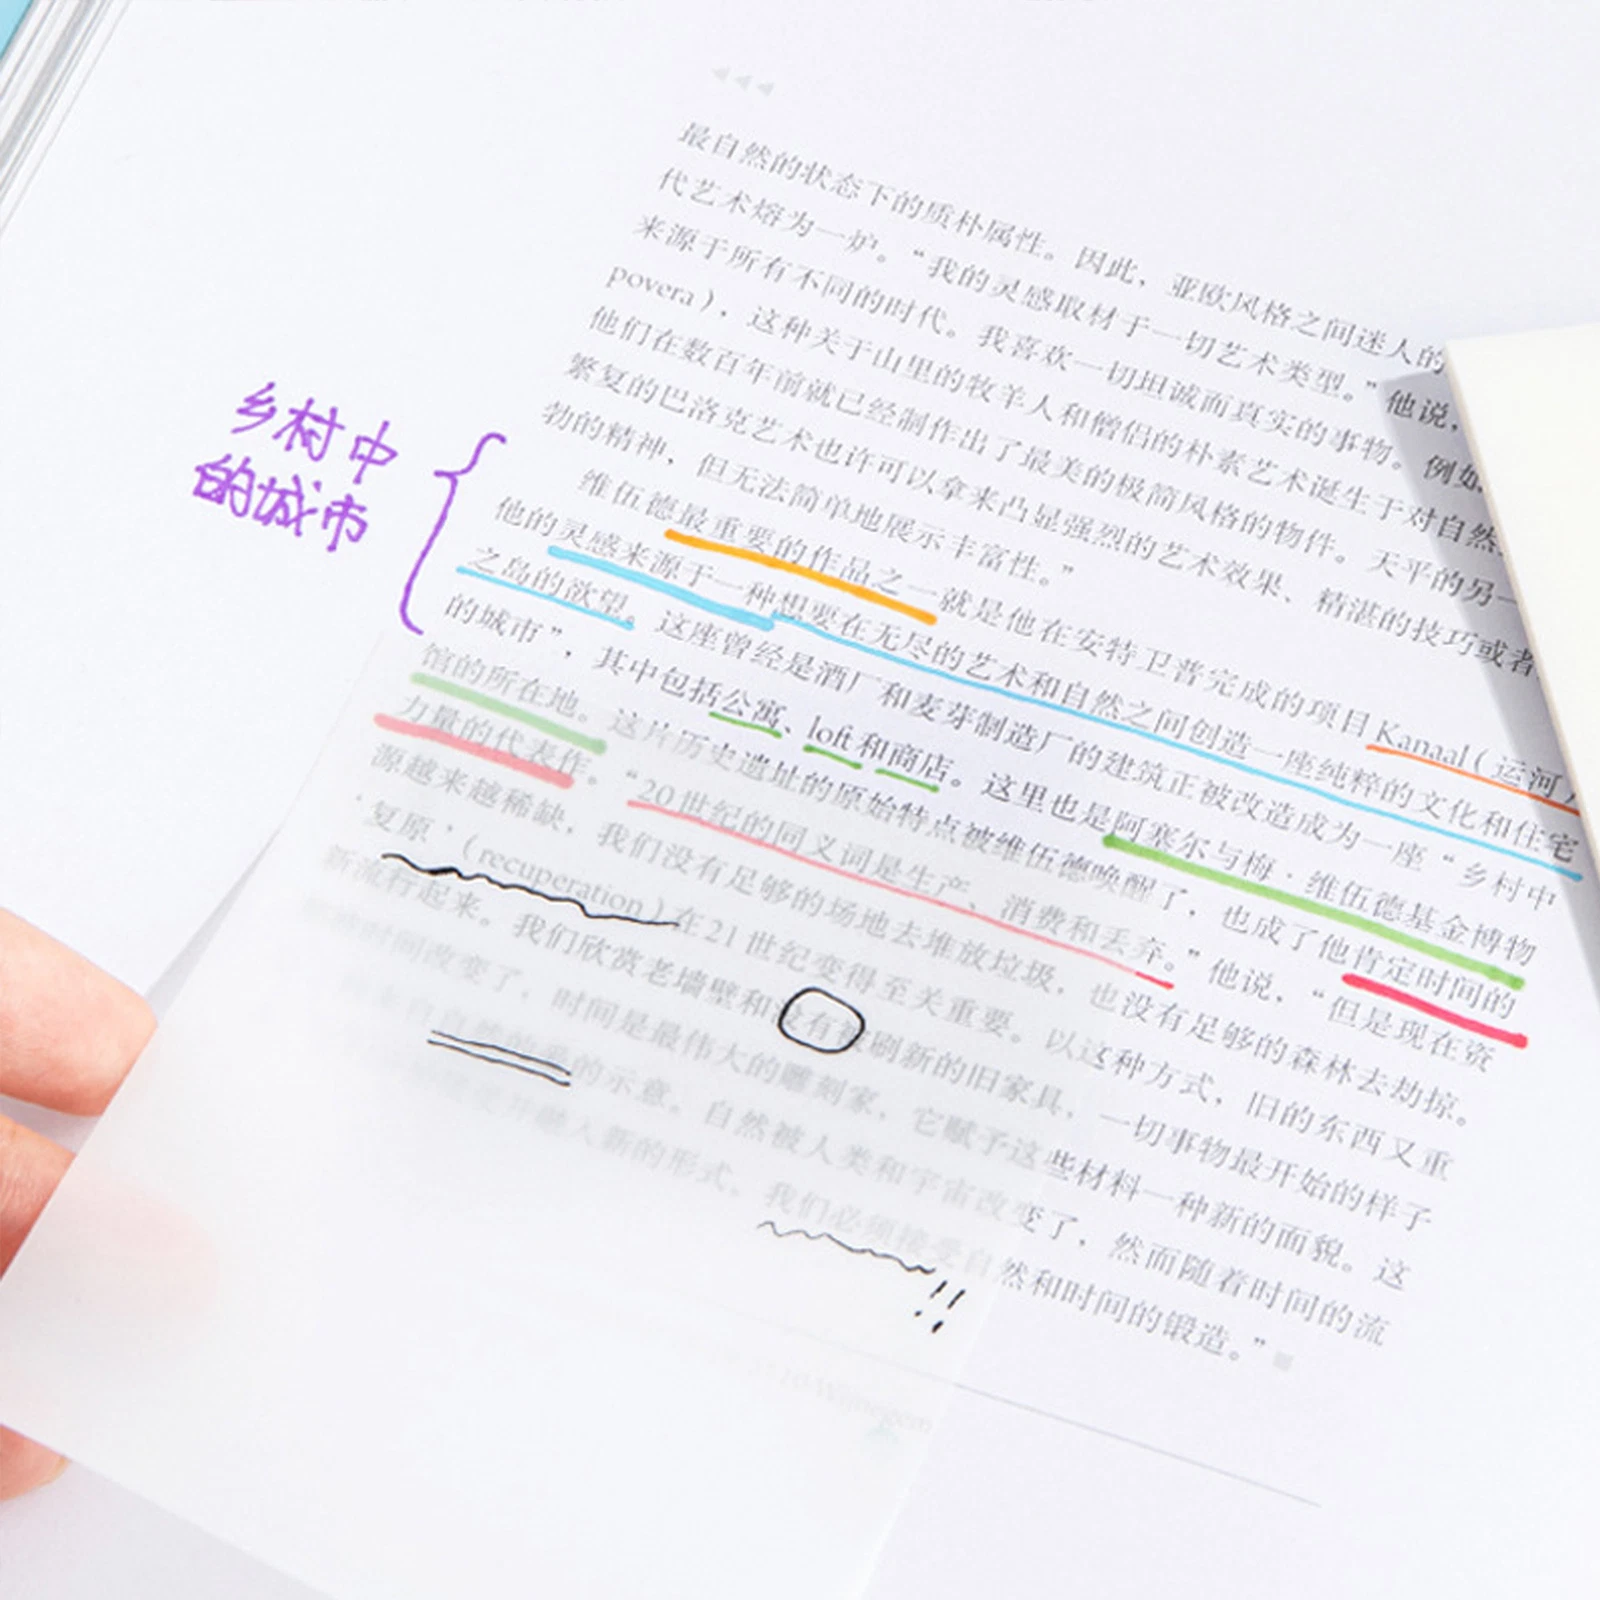 乡村中
的城市
最自然的状态下的质朴属性。因此，亚欧风格之间迷人的
代艺术熔为一炉。“我的灵感取材于一切艺术类型。”他说，
来源于所有不同的时代。我喜欢一切坦诚而真实的事物。例如
povera），这种关于山里的牧羊人和僧侣的朴素艺术诞生于对自然
他们在数百年前就已经制作出了最美的极简风格的物件。天平的另一
繁复的巴洛克艺术也许可以拿来凸显强烈的艺术效果、精湛的技巧或者
勃的精神，但无法简单地展示丰富性。”
维伍德最重要的作品之一就是他在安特卫普完成的项目Kanaal（运河）
他的灵感来源于一种想要在无尽的艺术和自然之间创造一座纯粹的文化和住宅
之岛的欲望。这座曾经是酒厂和麦芽制造厂的建筑正被改造成为一座“乡村中
的城市”，其中包括公寓、loft和商店。这里也是阿塞尔与梅·维伍德基金博物
馆的所在地。这片历史遗址的原始特点被维伍德唤醒了，也成了他肯定时间的
力量的代表作。“20世纪的同义词是生产、消费和丢弃。”他说，“但是现在资
源越来越稀缺，我们没有足够的场地去堆放垃圾，也没有足够的森林去劫掠。
‘复原’（recuperation）在21世纪变得至关重要。以这种方式，旧的东西又重
新流行起来。我们欣赏老墙壁和没有被刷新的旧家具，一切事物最开始的样子
时间改变了，时间是最伟大的雕刻家，它赋予这些材料一种新的面貌。这
自然的爱的示意。自然被人类和宇宙改变了，然而随着时间的流
融入新的形式，我们必须接受自然和时间的锻造。”
!!